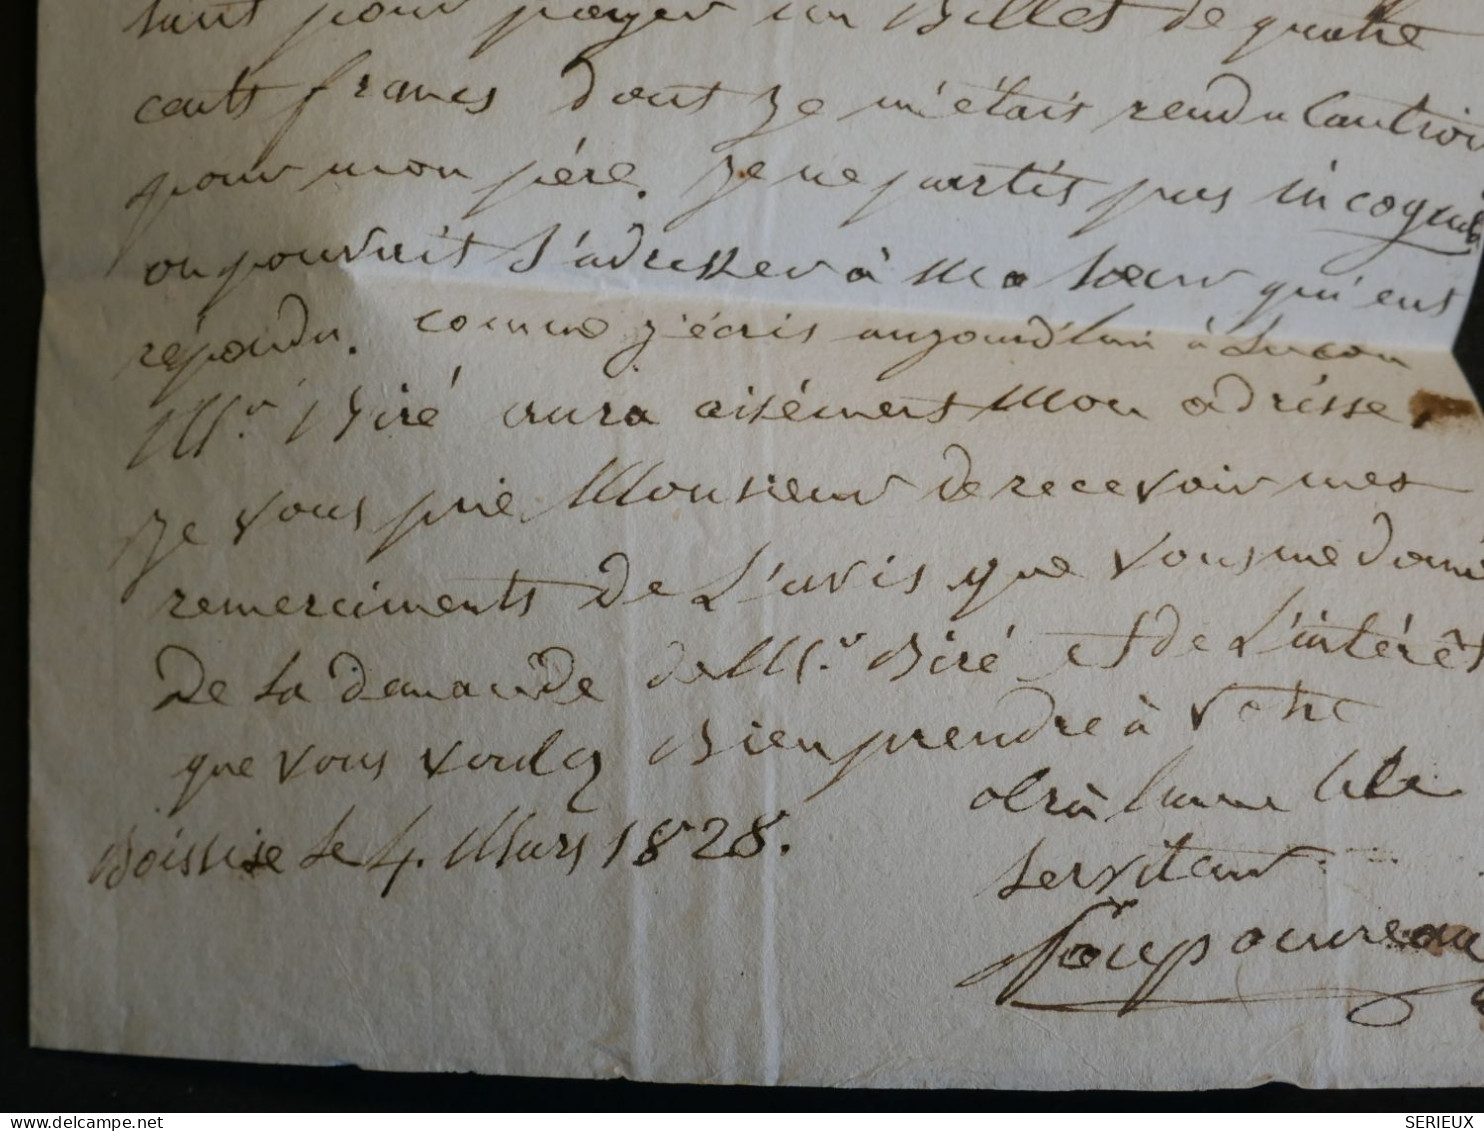 tant pour payer un Billet de quatre
cents francs dont je m'étais rendu Caution
pour mon père. je ne partis pas incognito
on pouvait s'adresser à Ma soeur qui eut
répondu. comme j'écris aujourd'hui à Luçon
Mr. Biré aura aisément Mon adrésse.
je vous prie Monsieur de recevoir mes
remerciments de L'avis que vous me donné
de la demande de Mr. Biré et de L'intérêt
que vous voulez Bien prendre à Votre
très humble
serviteur
Boissise le 4. Mars 1828.
www.delcampe.net
SERIEUX